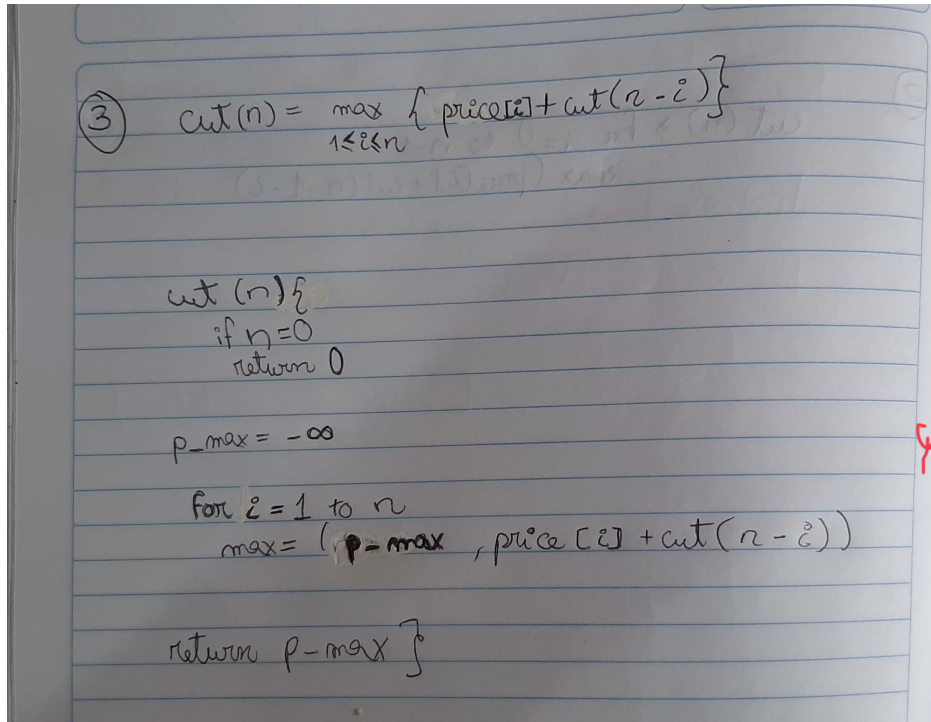 ③ cut(n) = max { price[i] + cut(n - i) }
1≤i≤n
cut (n) {
if n=0
return 0
p_max = -∞
for i = 1 to n
max = ( p-max , price [i] + cut ( n - i ) )
return p-max }